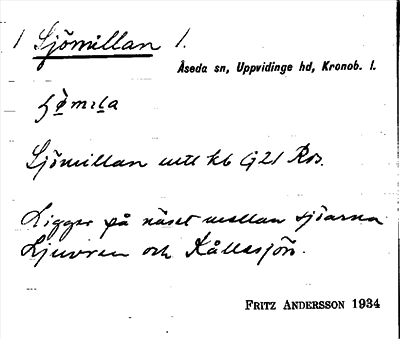 1 Sjömillan 1.
Åseda sn, Uppvidinge hd, Kronob. l.
Sjömillan enl kb G21 Ros.
Ligger på näset mellan sjöarna
Ljuvren och Kållasjön.
FRITZ ANDERSSON 1934